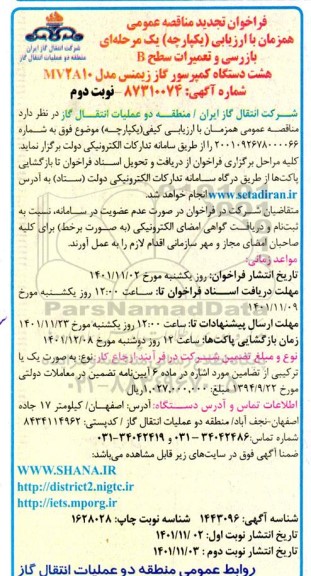 فراخوان تجدید مناقصه عمومی
همزمان با ارزیابی (یکپارچه) یک مرحله‌ای
بازرسی و تعمیرات سطح B
هشت دستگاه کمپرسور گاز زیمنس مدل MV2A10
شماره آگهی: 8731074- نوبت دوم
شرکت انتقال گاز ایران
منطقه دو عملیات انتقال گاز
شرکت انتقال گاز ایران / منطقه دو عملیات انتقال گاز در نظر دارد
مناقصه عمومی همزمان با ارزیابی کیفی(یکپارچه) موضوع فوق به شماره
2001092678000066 را از طریق سامانه تدارکات الکترونیکی دولت برگزار نماید.
کلیه مراحل برگزاری فراخوان از دریافت و تحویل اسناد فراخوان تا بازگشایی
پاکت‌ها از طریق درگاه سامانه تدارکات الکترونیکی دولت (ستاد) به آدرس
www.setadiran.ir انجام خواهد شد.
متقاضیان شرکت در فراخوان در صورت عدم عضویت در سامانه، نسبت به
ثبت‌نام و دریافت گواهی امضای الکترونیکی (به صورت برخط) برای کلیه
صاحبان امضای مجاز و مهر سازمانی اقدام لازم را به عمل آورند.
مواعد زمانی:
تاریخ انتشار فراخوان: روز یکشنبه مورخ 1401/11/02
مهلت دریافت اسناد فراخوان تا: ساعت 12:00 روز یکشنبه مورخ
1401/11/09
مهلت ارسال پیشنهادات تا: ساعت 12:00 روز یکشنبه مورخ 1401/11/23
زمان بازگشایی پاکت‌ها: ساعت 12 روز دوشنبه مورخ 1401/12/08
نوع و مبلغ تضمین شرکت در فرآیند ارجاع کار: نوع: به صورت یک یا
ترکیبی از تضامین مورد اشاره در ماده 6 آیین‌نامه تضمین در معاملات دولتی
مورخ 1394/9/22، مبلغ: 1،027،000،000 ریال
اطلاعات تماس و آدرس دستگاه: آدرس: اصفهان/ کیلومتر 17 جاده
اصفهان-نجف آباد/ منطقه دو عملیات انتقال گاز / کدپستی: 8434114962
شماره تماس: 34042486-031 و 34042419-031
ضمنا آگهی فوق در سایت‌های زیر قابل مشاهده می‌باشد:
WWW.SHANA.IR
http://district2.nigtc.ir
http://iets.mporg.ir
شناسه آگهی: 1443096 شناسه نوبت چاپ: 1628028
تاریخ انتشار نوبت اول: 1401/11/02
تاریخ انتشار نوبت دوم : 1401/11/03
روابط عمومی منطقه دو عملیات انتقال گاز